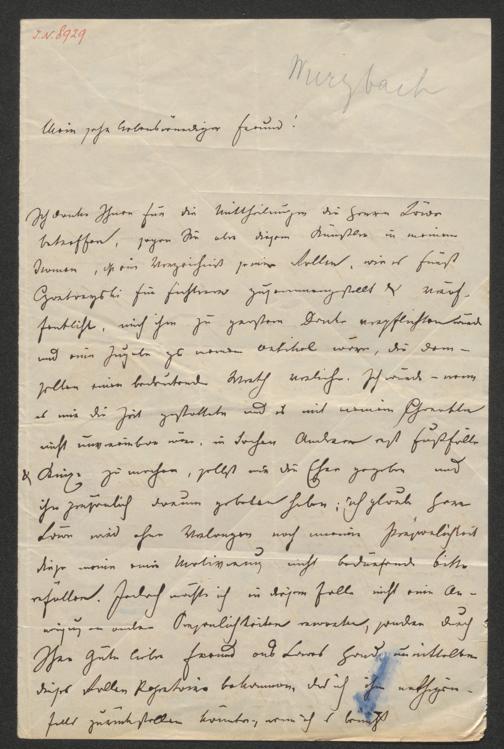 I.N. 8929
Wurzbach
Mein sehr liebenswürdiger Freund!
Ich danke Ihnen für die Mittheilungen die Herrn Löwe
betreffen, sagen Sie aber diesem Künstler in meinem
Namen, ein Verzeichniß seiner Rollen, wie es Fürst
Czartoryski für Fichtner zusammengestellt & veröf-
fentlicht, mich ihm zu großem Danke verpflichten würde
und eine Zugabe zu meinem Artikel wäre, die dem-
selben einen bedeutenden Werth verliehe. Ich würde - wenn
es mir die Zeit gestattete und es mit meinem Charakter
nicht unvereinbar wäre, in Sachen Anderer erst Fußfälle
& Knixe zu machen, selbst mir die Ehre gegeben und
ihn persönlich darum gebeten haben; ich glaube Herr
Löwe wird ohne Verlangen nach meiner Persönlichkeit
diese meine eine Motivirung nicht bedürfende Bitte
erfüllen. Jedoch möchte ich in diesem Falle nicht eine An-
weisung an andere Persönlichkeiten erwarten, sondern durch
Ihre Güte lieber Freund aus Löwes Hand unmittelbar
dieses Rollen Repertoire bekommen, das ich ihm
falls zurückstellen könnte, wenn ich es benützt